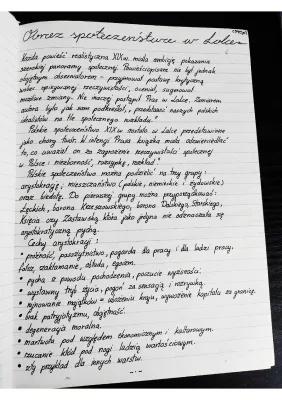 Obraz społeczeństwa w Lalce
Każda powieść realistyczna XIX w. miała ambicję pokazania
szerokiej panoramy społecznej. Powieściopisarz nie był jednak
obojętnym obserwatorem - przyjmował postawę krytyczną
wobec opisywanej rzeczywistości, oceniał, sugerował
możliwe zmiany. Nie inaczej postąpił Prus w Lalce. Zamiarem
autora było jak sam podkreślał, „przedstawić naszych polskich
idealistów na tle społecznego rozkładu."
Polskie społeczeństwo XIX w zostało w Lalce przedstawione
jako chory twór. W intencji Prusa książka miała odzwierciedlać
to, co uważał on za zagrożenie rzeczywistości społecznej
w Polsce: niezborność, rozsypkę, rozkład.
Polskie społeczeństwo można podzielić na trzy grupy:
arystokrację, mieszczaństwo (polskie, niemieckie i żydowskie)
oraz biedotę. Do pierwszej grupy można przyporządkować:
Łęckich, barona Krzeszowskiego, barona Dalskiego, Starskiego,
Księcia czy Zasławską, która jako jedyna nie odznaczała się
arystokratyczną pychą.
Cechy arystokracji:
• próżność, pasożytnictwo, pogarda dla pracy i dla ludzi pracy,
fałsz, zakłamanie, obłuda, egoizm.
• pycha z powodu pochodzenia, poczucie wyższości.
• wystawny tryb życia, pogoń za sensacją i rozrywką.
• rujnowanie majątków - ubożenie kraju, wywożenie kapitału za granicę.
• brak patriotyzmu, obojętność.
• degeneracja moralna.
• martwota pod względem ekonomicznym i kulturowym.
• rzucanie kłód pod nogi ludziom wartościowym.
• zły przykład dla innych warstw.